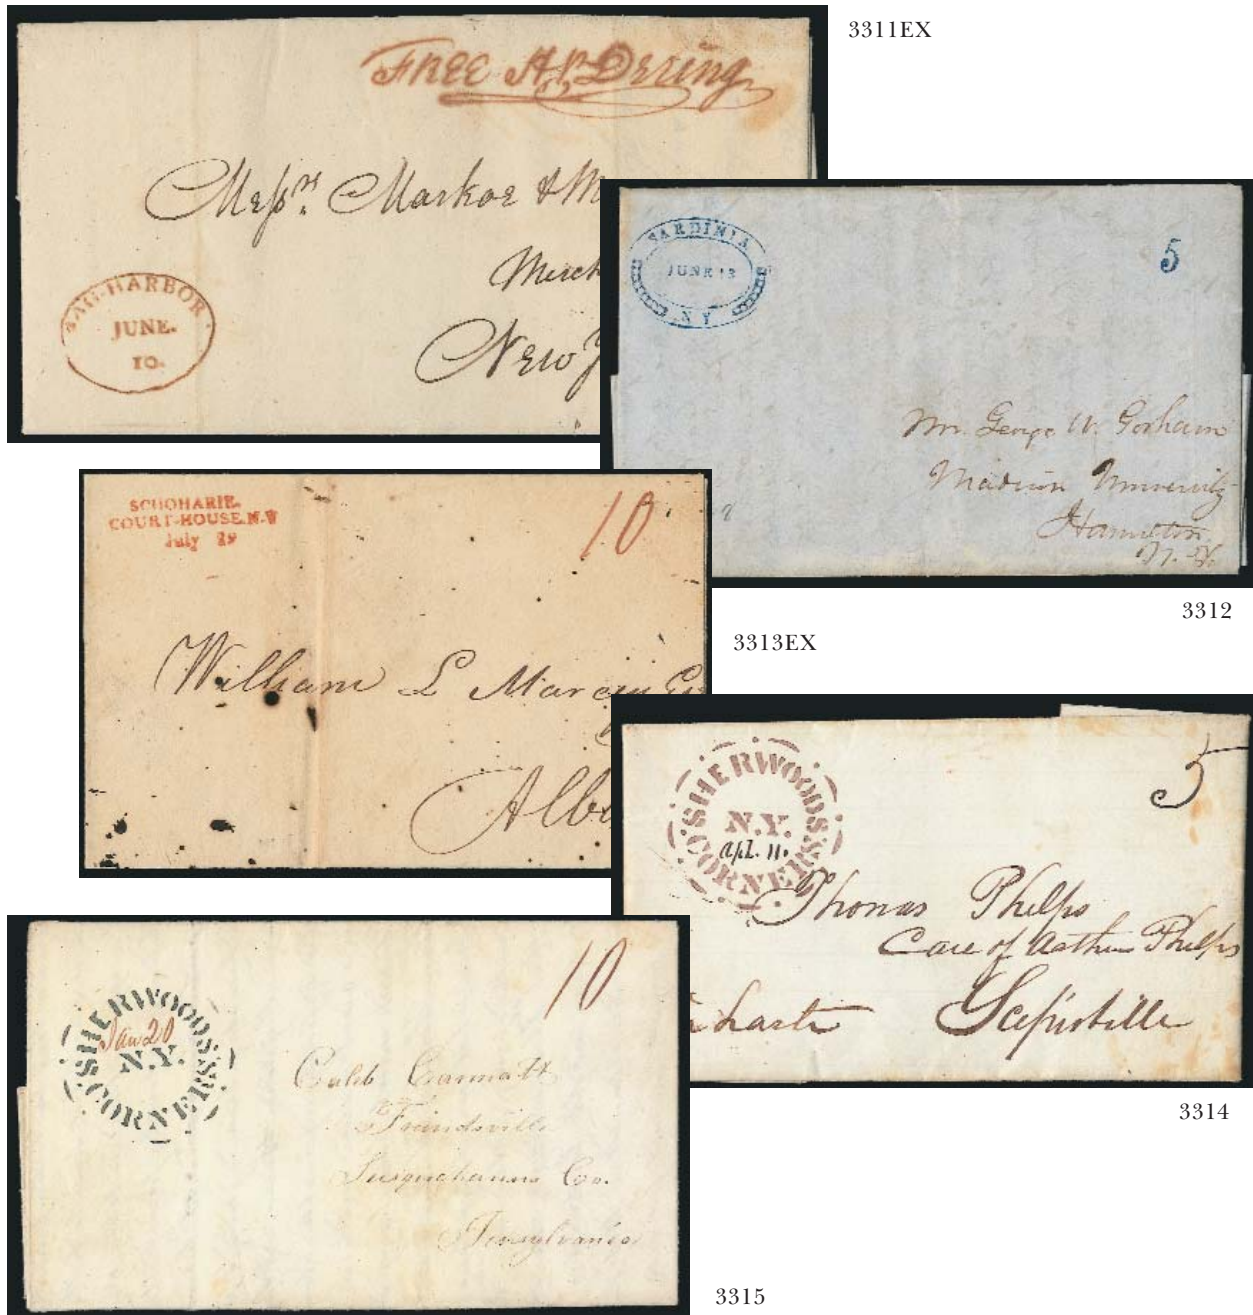 3311EX
FREE H P Dering
Messrs. Markoe & M
Merch
New Y
SAG-HARBOR.
JUNE.
10.
SARDINIA
JUNE 13
N.Y.
5
Mr. George W. Gorham
Madison University
Hamilton
N. Y.
3312
SCHOHARIE.
COURT-HOUSE.N-Y
July 29
10
William L Marcy Esq
Alba
3313EX
SHERWOODS
N.Y.
Apl. 11.
CORNERS
5
Thomas Phelps
Care of Arthur Phelps
Scipioville
3314
SHERWOODS
Jan 20
N.Y.
CORNERS
10
Caleb Carmalt
Friendsville
Susquehanna Co.
Pennsylvania
3315